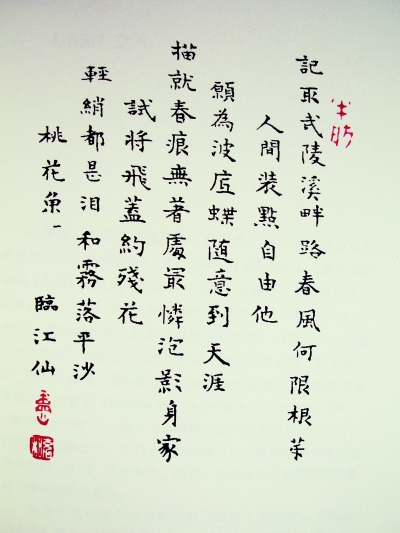 記取武陵溪畔路春風何限根芽
人間裝點自由他
願為波底蝶隨意到天涯
描就春痕無著處最憐泡影身家
試將飛蓋約殘花
輕綃都是泪和霧落平沙
桃花魚一 臨江仙